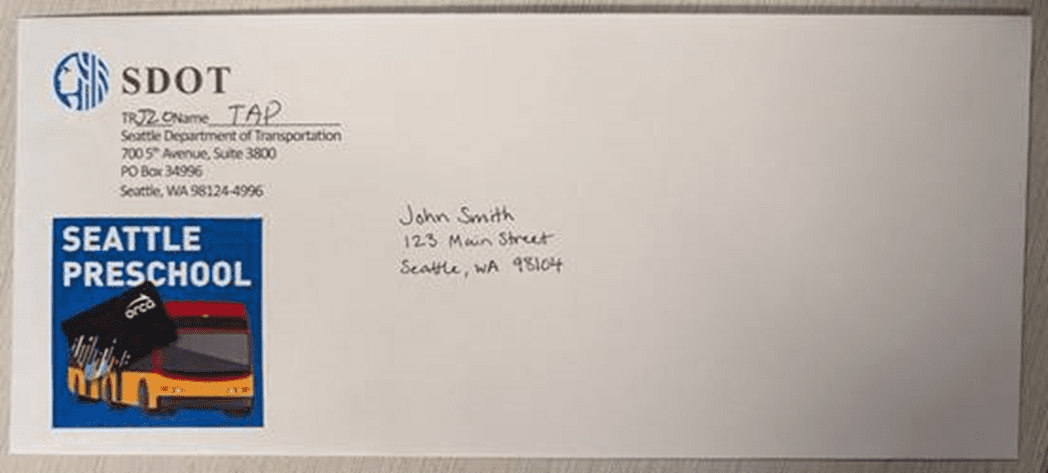 SDOT
TRJZ0 Name TAP
Seattle Department of Transportation
700 5th Avenue, Suite 3800
PO Box 34996
Seattle, WA 98124-4996
SEATTLE
PRESCHOOL
orca
John Smith
123 Main Street
Seattle, WA 98104